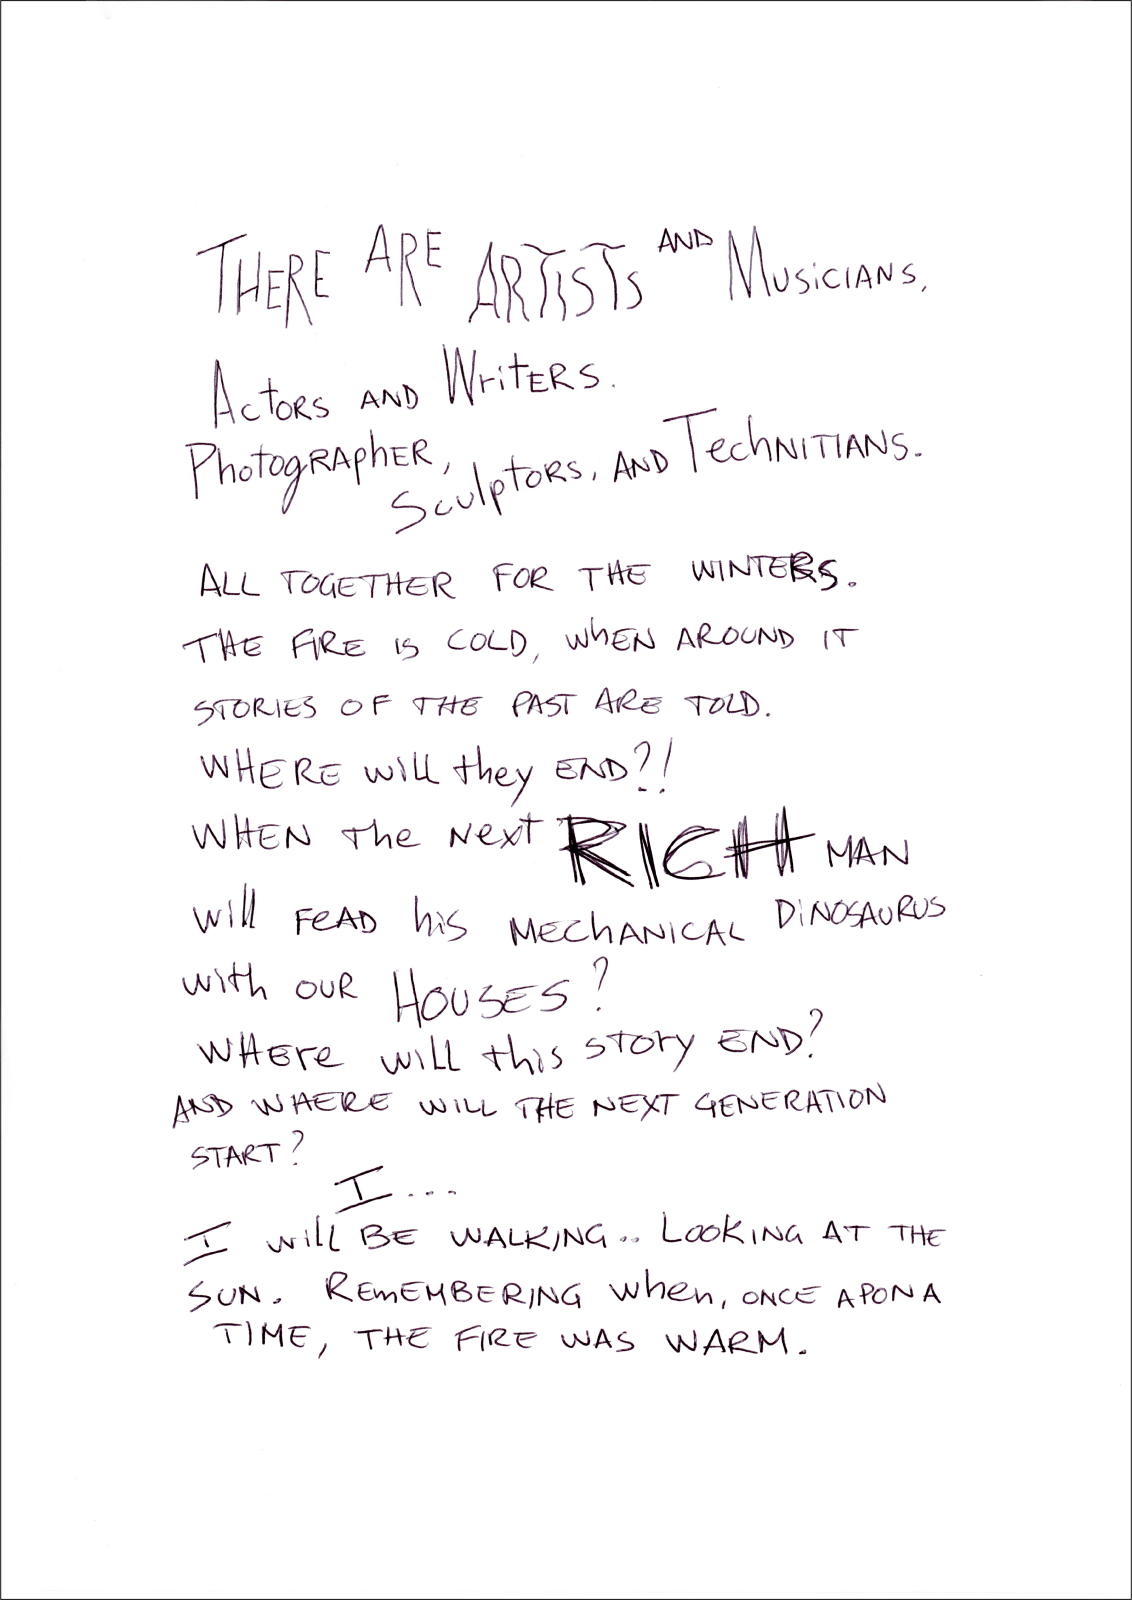 THERE ARE ARTISTS AND MUSiCIANS,
ACTORS AND WRiTERS.
PhotogRAphER, Sculptors, AND TechNITIANS.
ALL TOGETHER FOR THE WINTERS.
THE FIRE IS COLD, WhEN AROUND IT
STORIES OF THE PAST ARE TOLD.
WHERE will they END?!
WHEN the Next RICH MAN
will FeAD his MEChANICAL DiNOSAURUS
with OUR HOUSES?
WHEre will this story END?
AND WHERE WILL THE NEXT GENERATION
START?
I...
I will BE WALKING.. LOOKING AT THE
SUN. REmEMBERING when, ONCE APON A
TIME, THE FIRE WAS WARM.